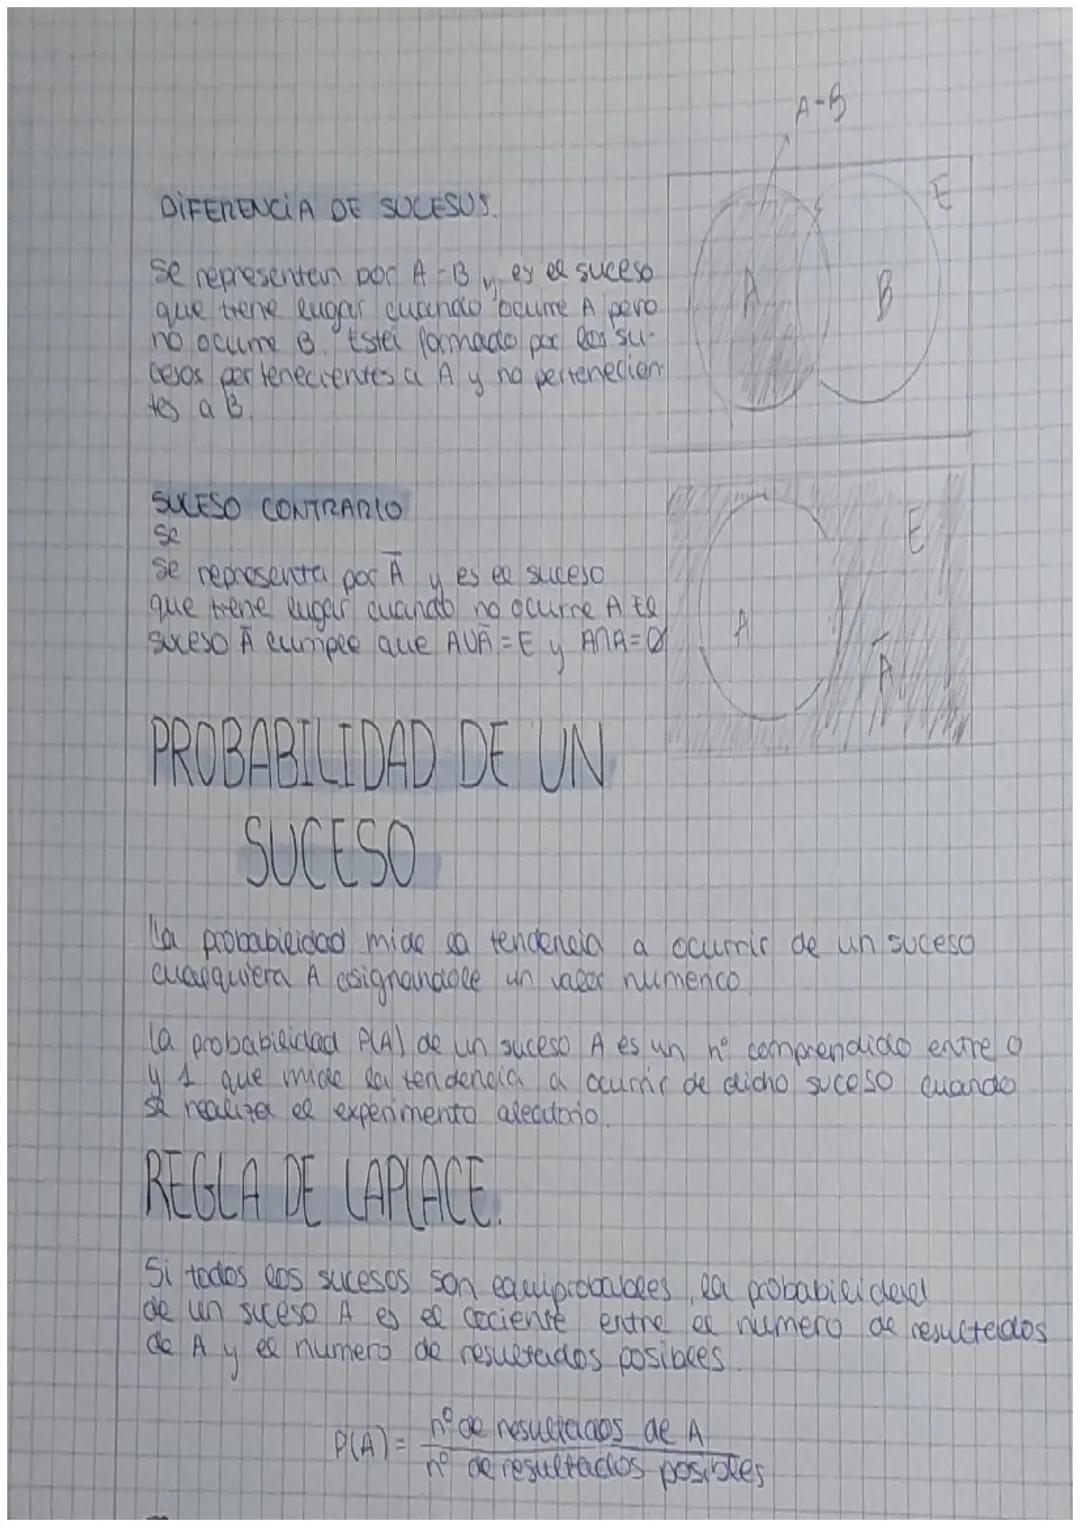 A-B
DIFERENCIA DE SUCESUS.
E
Se representan por A-B y es el suceso
que tiene lugar cuando ocurre A pero
no ocurre B. Está formado por los su-
cesos pertenecientes a A y no pertenecien
tes a B.
A
B
SUCESO CONTRARIO
Se
Se representa por A̅ y es el suceso
que tiene lugar cuando no ocurre A El
suceso A̅ cumple que AUA̅=E y A∩A=Ø
E
A
A̅
PROBABILIDAD DE UN
SUCESO
La probabilidad mide la tendencia a ocurrir de un suceso
cualquiera A asignandole un valor numerico.
La probabilidad P(A) de un suceso A es un nº comprendido entre 0
y 1 que mide la tendencia a ocurrir de dicho suceso cuando
se realiza el experimento aleatorio.
REGLA DE LAPLACE.
Si todos los sucesos son equiprobables, la probabilidad
de un suceso A es el cociente entre el numero de resultados
de A y el numero de resultados posibles.
P(A) = nº de resultados de A
nº de resultados posibles